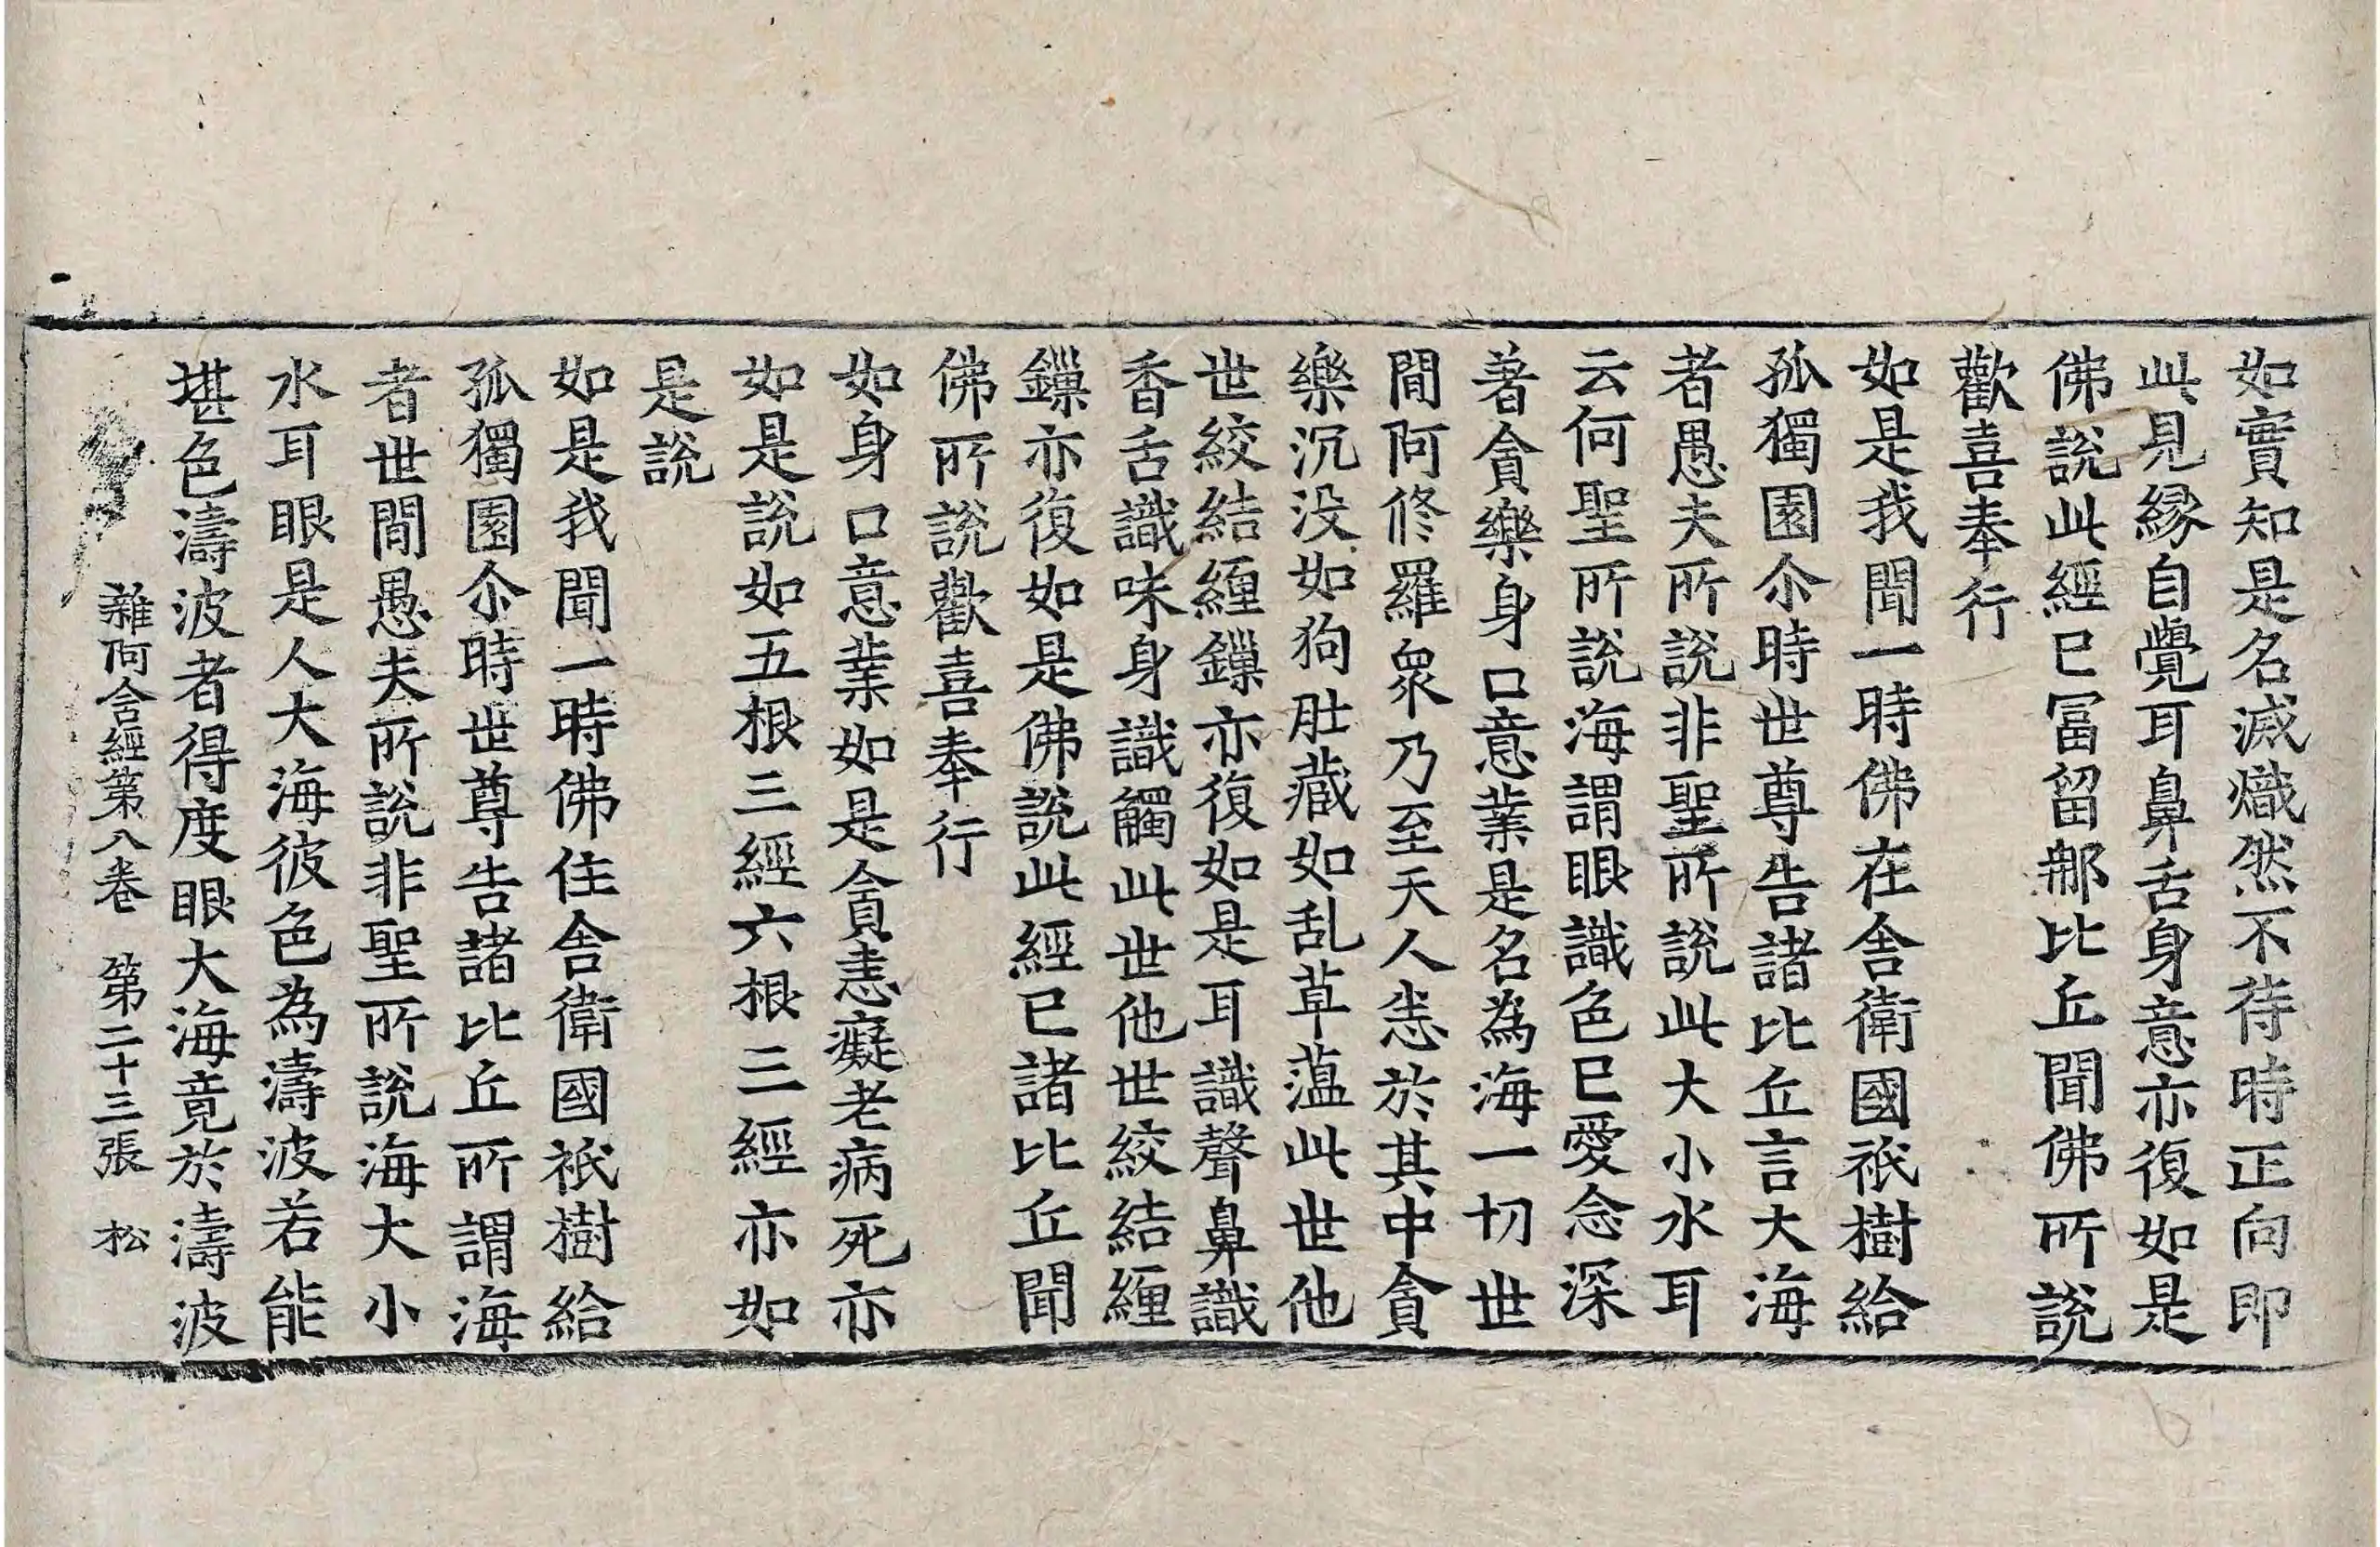 如實知是名滅熾然不待時正向即
此見縁自覺耳鼻舌身意亦復如是
佛說此經已冨留那比丘聞佛所說
歡喜奉行
如是我聞一時佛在舎衛國祇樹給
孤獨園尒時世尊告諸比丘言大海
者愚夫所說非聖所說此大小水耳
云何聖所說海謂眼識色已愛念深
著貪樂身口意業是名為海一切世
閒阿修羅衆乃至天人悉於其中貪
樂沉没如狗肚藏如乱草蕰此世他
世絞結纏鏁亦復如是耳識聲鼻識
香舌識味身識觸此世他世絞結纏
鏁亦復如是佛說此經已諸比丘聞
佛所說歡喜奉行
如身口意業如是貪恚癡老病死亦
如是說如五根三經六根三經亦如
是說
如是我聞一時佛住舎衛國祇樹給
孤獨園尒時世尊告諸比丘所謂海
者世閒愚夫所說非聖所說海大小
水耳眼是人大海彼色為濤波若能
堪色濤波者得度眼大海竟於濤波
雜阿含經第八卷　第二十三張　松